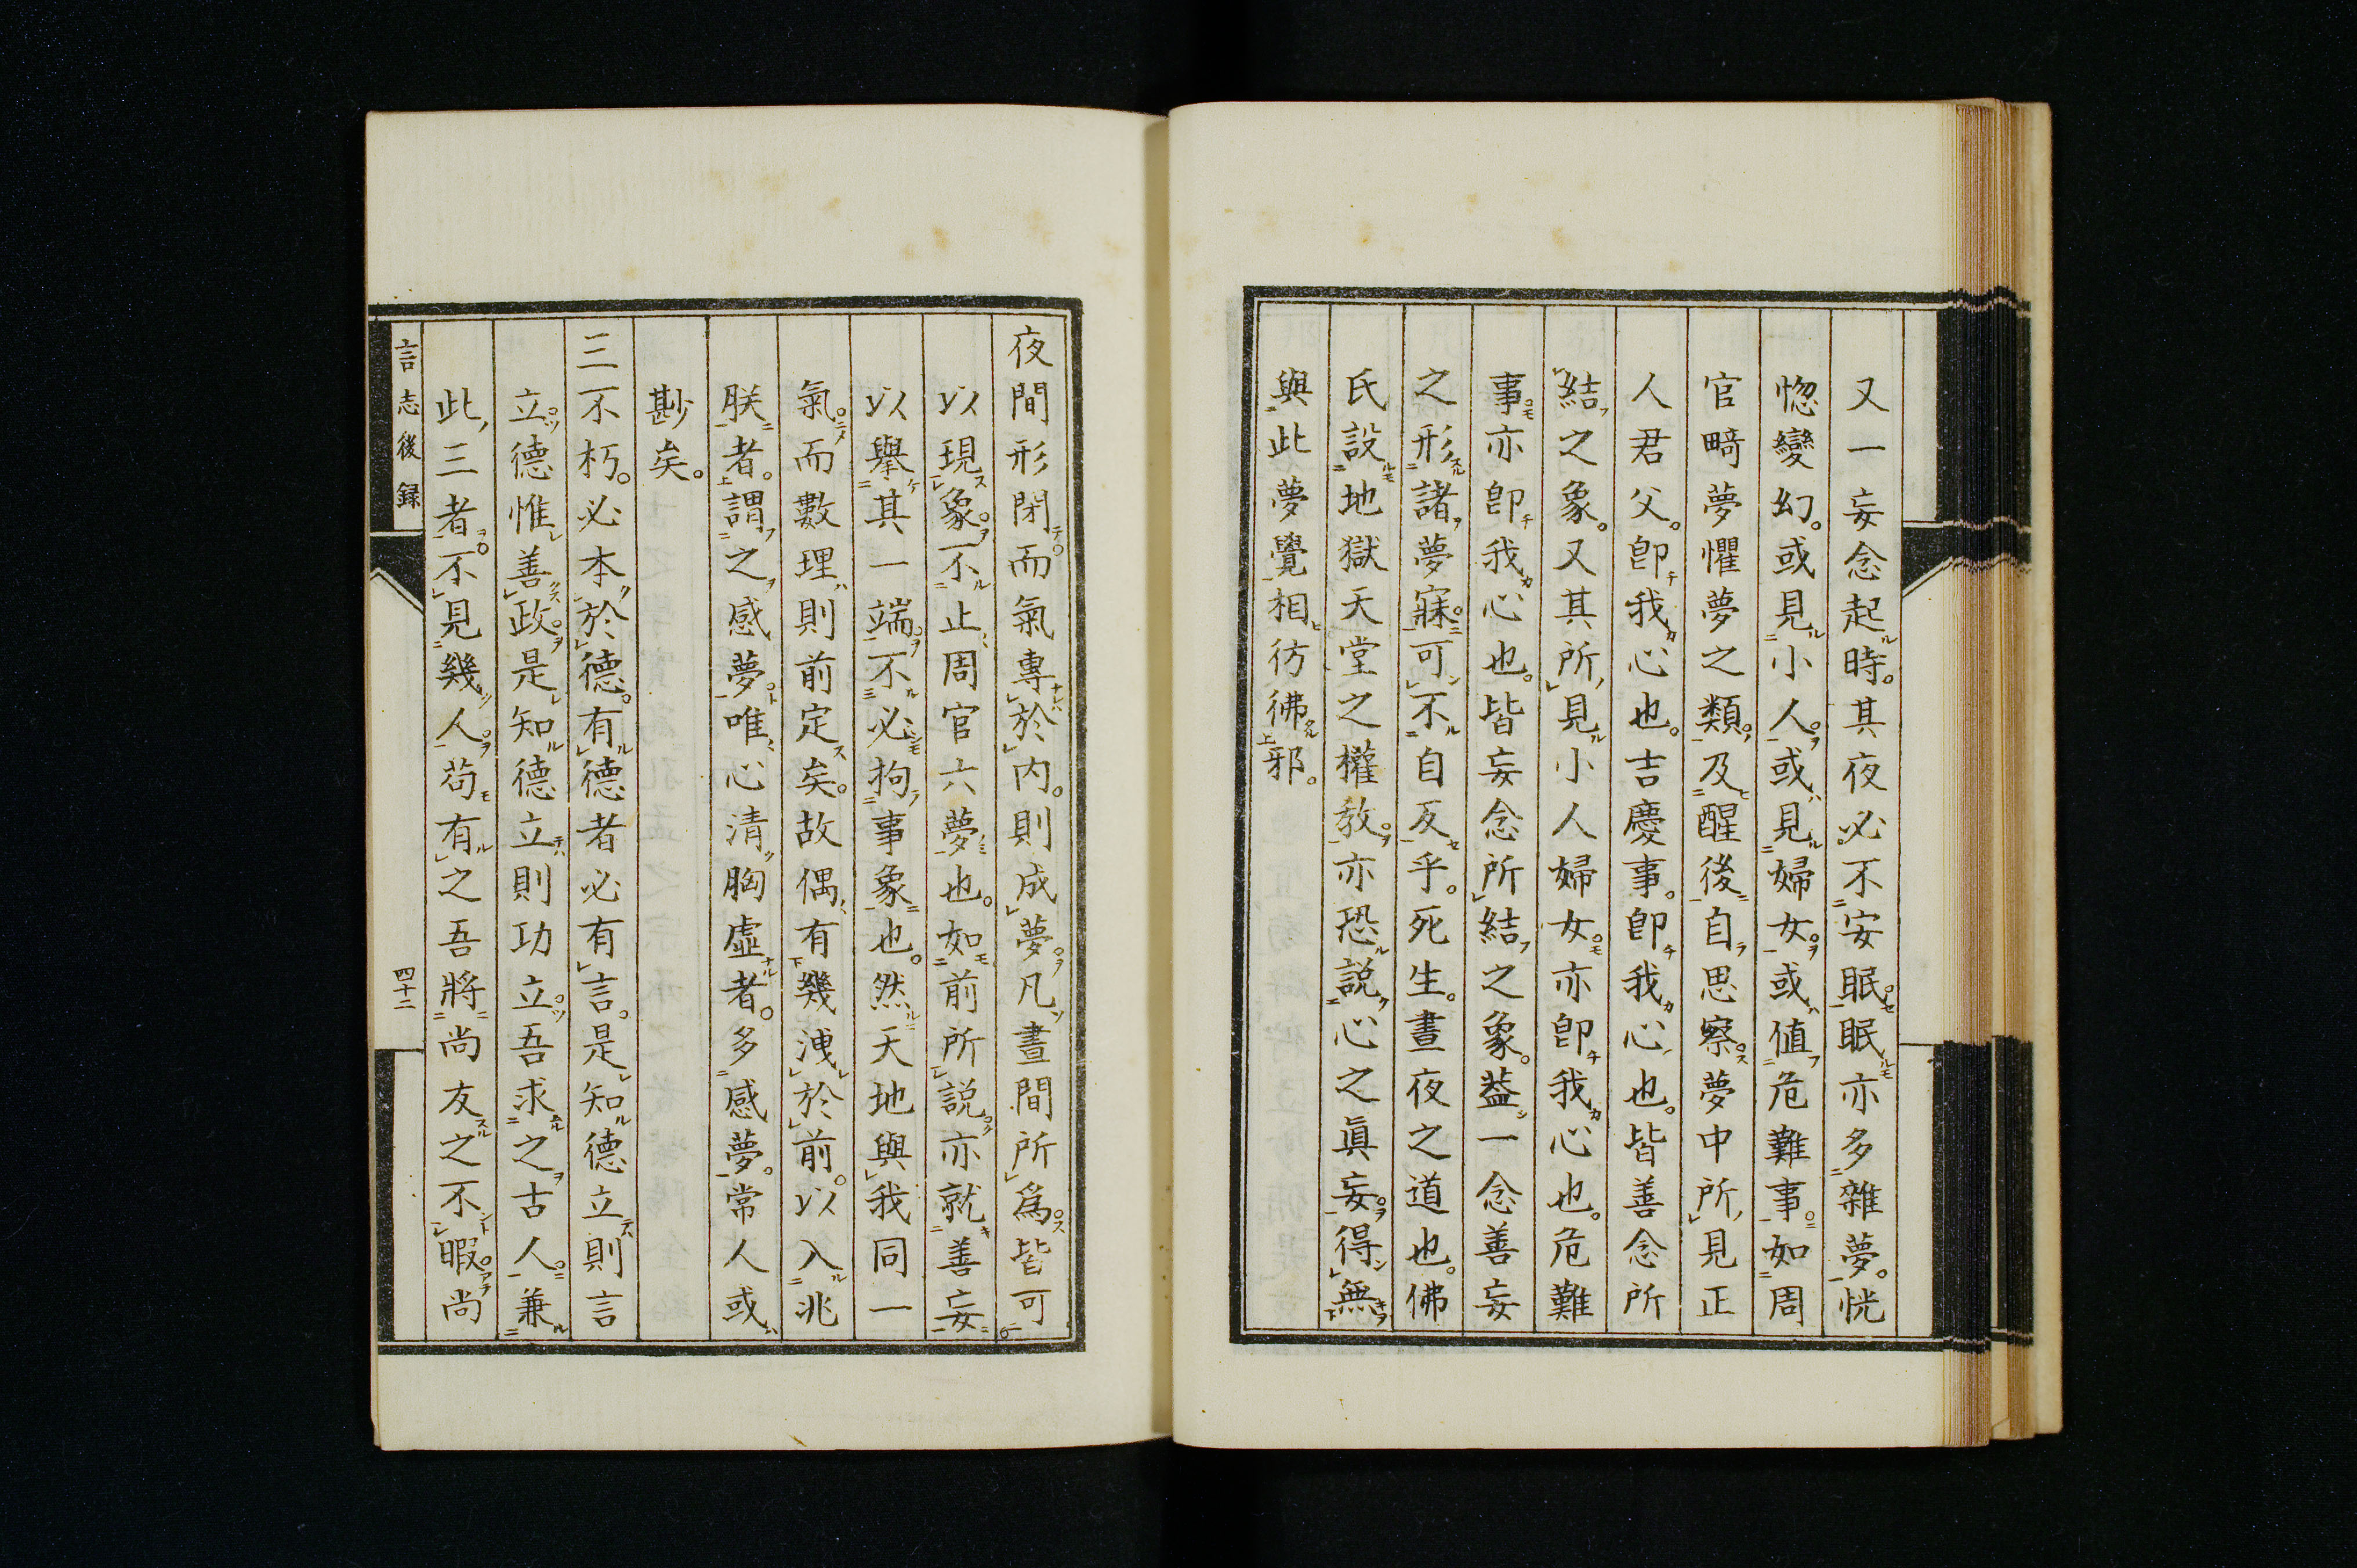 又一妄念起時。其夜必不安眠眠亦多雜夢。恍
惚變幻。或見小人或見婦女或値危難事如周
官畸夢懼夢之類及醒後自思察夢中所見正
人君父。卽我心也。吉慶事。卽我心也。皆善念所
結之象。又其所見小人婦女亦卽我心也。危難
事亦卽我心也。皆妄念所結之象。葢一念善妄
之形諸夢寐可不自反乎。死生。晝夜之道也。佛
氏設地獄天堂之權敎亦恐説心之眞妄得無
與此夢覺相彷彿邪。
夜間形閉而氣專於内。則成夢凡晝間所爲皆可
以現象不止周官六夢也。如前所説亦就善妄
以擧其一端不必拘事象也。然天地與我同一
氣而數理則前定矣。故偶有幾洩於前。以入兆
朕者。謂之感夢唯心清胸虛者。多感夢。常人或
尠矣。
三不朽。必本於德。有德者必有言。是知德立則言
立德惟善政是知德立則功立吾求之古人兼
此三者不見幾人苟有之吾將尚友之不暇尚
言志後録
四十二